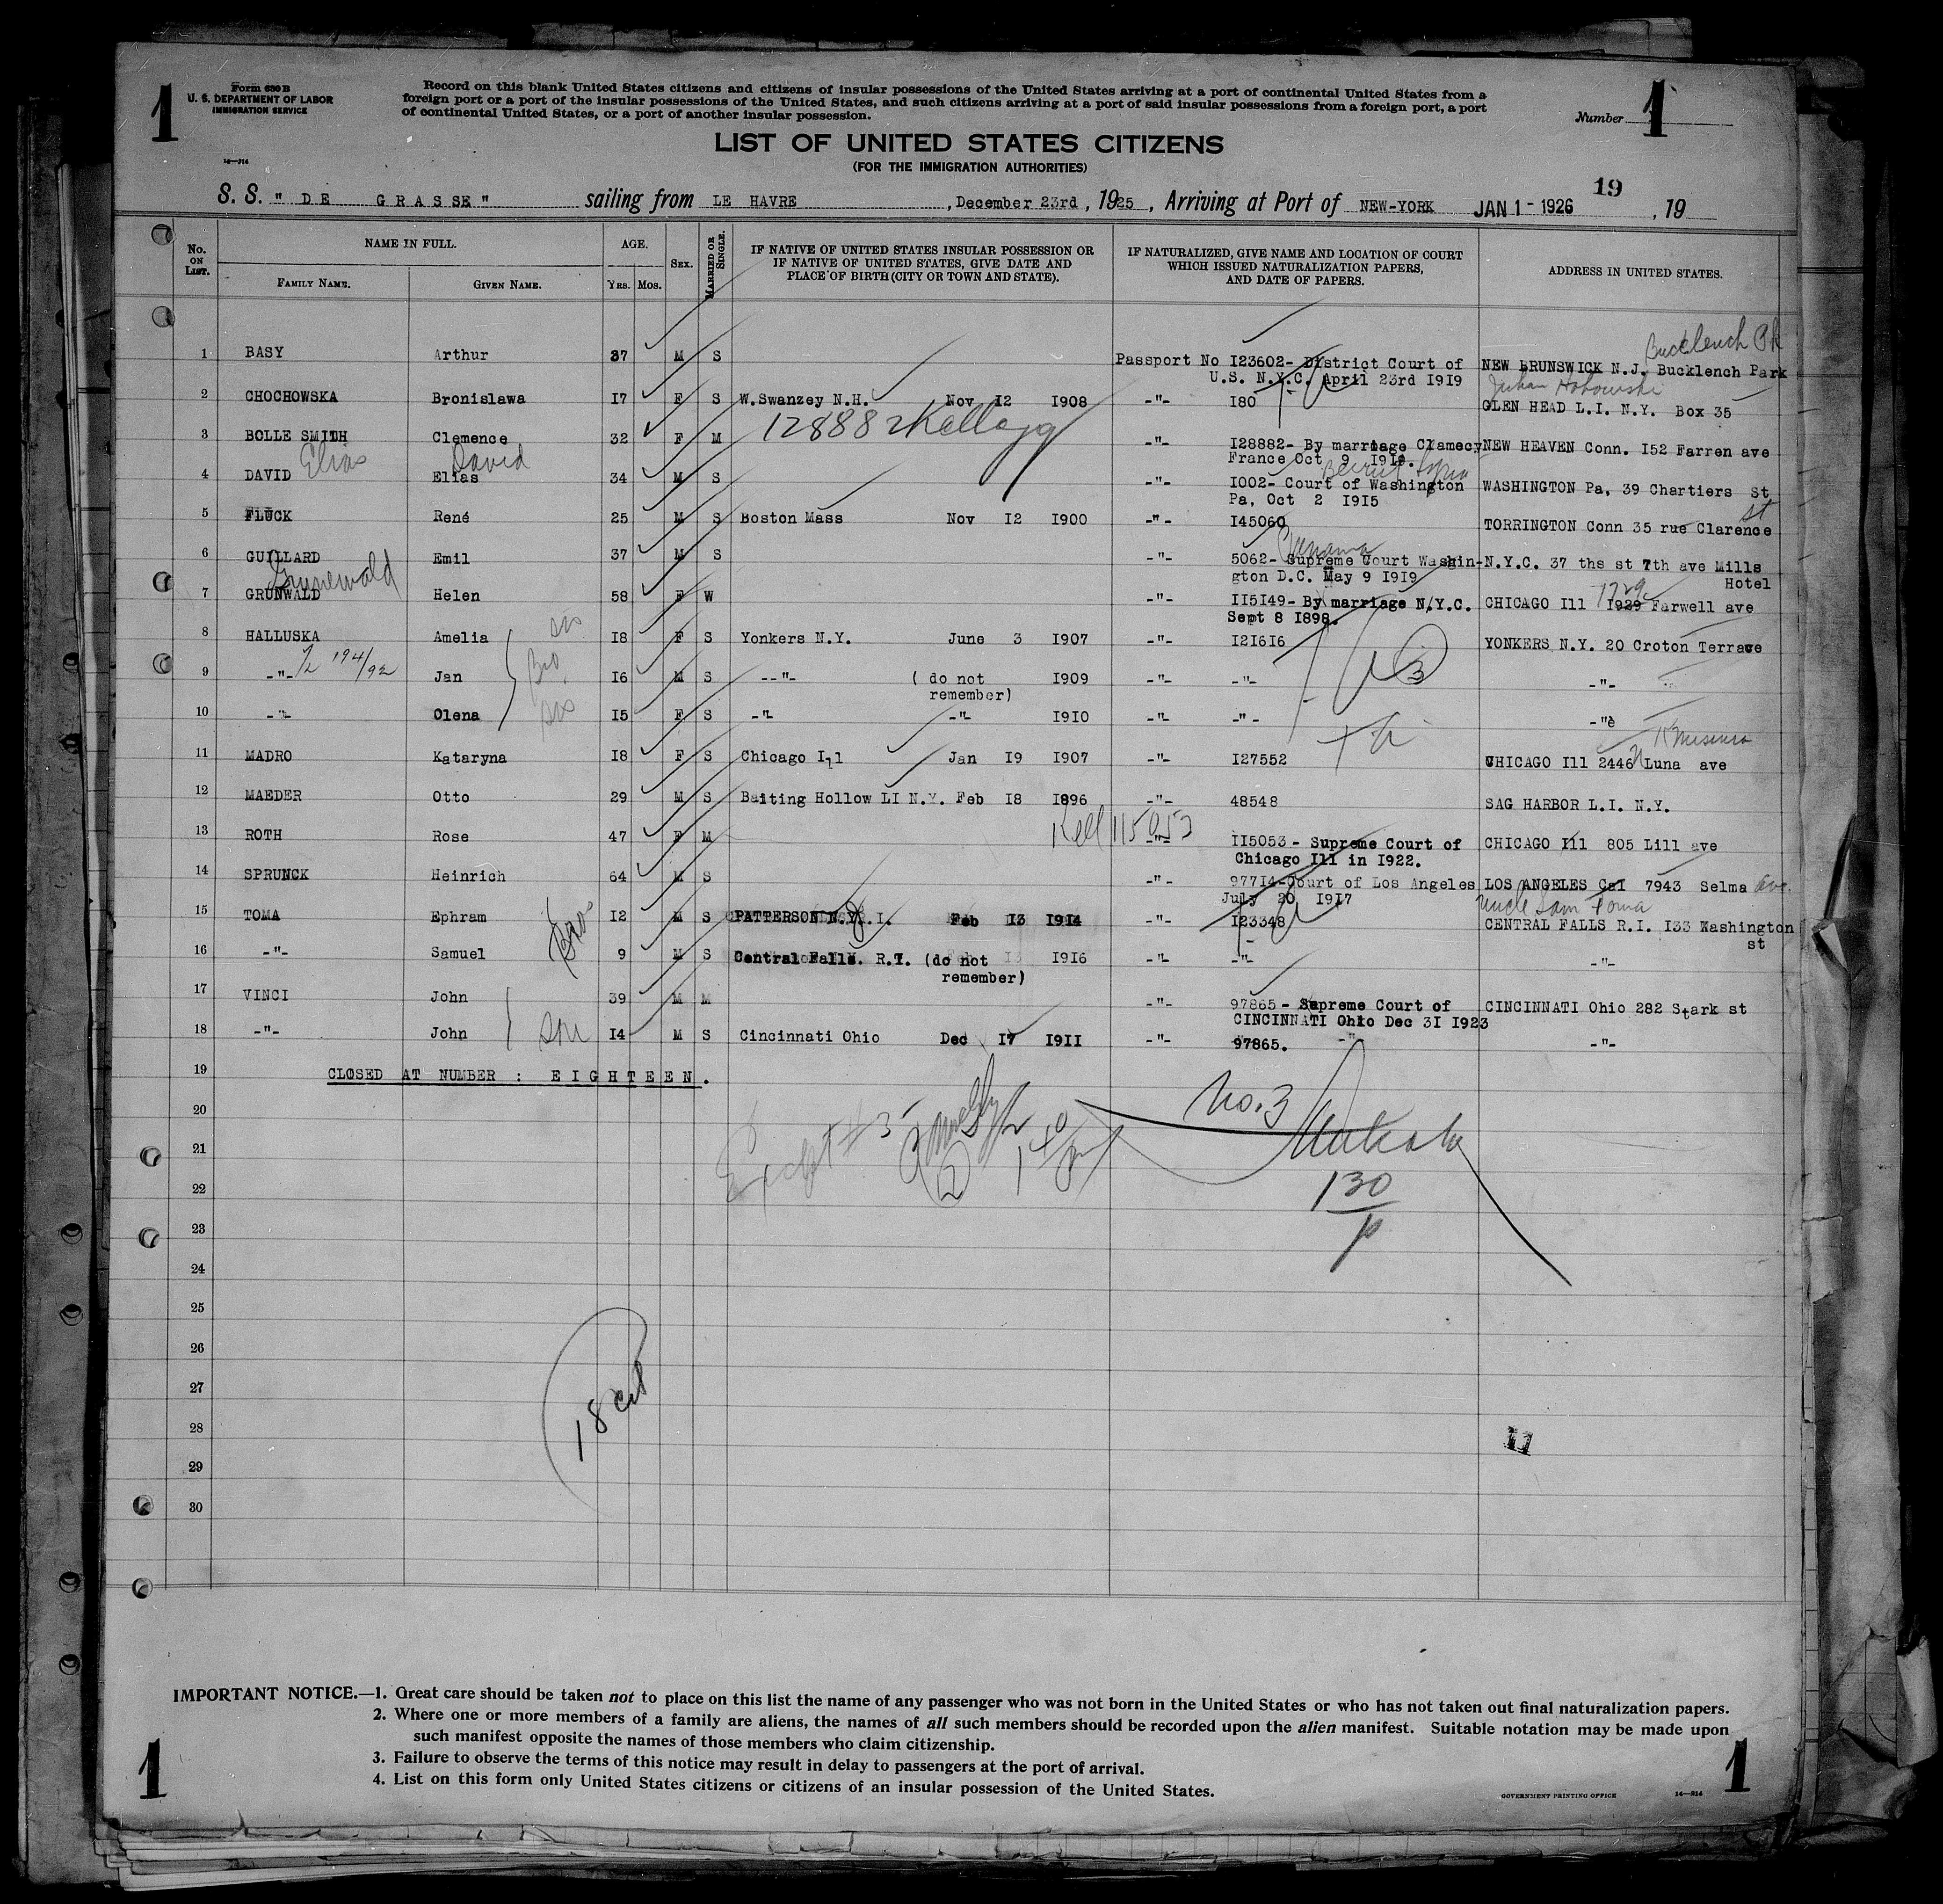 1
Form 630 B
U. S. DEPARTMENT OF LABOR
IMMIGRATION SERVICE
14—914
Record on this blank United States citizens and citizens of insular possessions of the United States arriving at a port of continental United States from a
foreign port or a port of the insular possessions of the United States, and such citizens arriving at a port of said insular possessions from a foreign port, a port
of continental United States, or a port of another insular possession.
Number 1
LIST OF UNITED STATES CITIZENS
(FOR THE IMMIGRATION AUTHORITIES)
19
S. S. " D E G R A S S E " sailing from LE HAVRE , December 23rd , 1925 , Arriving at Port of NEW-YORK JAN 1 - 1926 , 19
No. ON LIST. NAME IN FULL. AGE. SEX. MARRIED OR SINGLE. IF NATIVE OF UNITED STATES INSULAR POSSESSION OR IF NATIVE OF UNITED STATES, GIVE DATE AND PLACE OF BIRTH (CITY OR TOWN AND STATE). IF NATURALIZED, GIVE NAME AND LOCATION OF COURT WHICH ISSUED NATURALIZATION PAPERS, AND DATE OF PAPERS. ADDRESS IN UNITED STATES.
FAMILY NAME. GIVEN NAME. YRS. MOS.
Bucclench Pk
1 BASY Arthur 37 M S Passport No I23602- District Court of NEW BRUNSWICK N.J. Bucklench Park
U.S. N.Y.C. April 23rd I9I9
2 CHOCHOWSKA Bronislawa I7 F S W.Swanzey N.H. Nov I2 I908 -"- I80 GLEN HEAD L.I. N.Y. Box 35
128882 Kellogg
3 BOLLE SMITH Clemence 32 F M -"- I28882- By marriage Clamecy NEW HEAVEN Conn. I52 Farren ave
France Oct 9 I9I8.
Elias David Beirut Syria
4 DAVID Elias 34 M S -"- I002- Court of Washington WASHINGTON Pa, 39 Chartiers St
Pa, Oct 2 I9I5
5 FLUCK René 25 M S Boston Mass Nov I2 I900 -"- I45060 TORRINGTON Conn 35 rue Clarence St
Panama
6 GUILLARD Emil 37 M S -"- 5062- Supreme Court Washin- N.Y.C. 37 ths st 7th ave Mills
gton D.C. May 9 I9I9 Hotel
Grunewald 1729
7 GRUNWALD Helen 58 F W -"- II5I49- By marriage N.Y.C. CHICAGO Ill I929 Farwell ave
Sept 8 I898.
8 HALLUSKA Amelia sis I8 F S Yonkers N.Y. June 3 I907 -"- I2I6I6 YONKERS N.Y. 20 Croton Terrace
9 -"- 194/92 Jan Bro I6 M S --"- ( do not I909 -"- -"- -"-
remember)
10 -"- Olena sis I5 F S -"- -"- I9I0 -"- -"- -"-
11 MADRO Kataryna I8 F S Chicago Ill Jan I9 I907 -"- I27552 CHICAGO Ill 2446 N Luna ave
12 MAEDER Otto 29 M S Baiting Hollow LI N.Y. Feb I8 I896 -"- 48548 SAG HARBOR L.I. N.Y.
Kell 115053
13 ROTH Rose 47 F M -"- II5053 - Supreme Court of CHICAGO Ill 805 Lill ave
Chicago Ill in I922.
14 SPRUNCK Heinrich 64 M S -"- 977I4-Court of Los Angeles LOS ANGELES Cal 7943 Selma ave.
July 20 I9I7
uncle Sam Toma
15 TOMA Ephram Bro I2 M S PATTERSON N.Y. R.I. Feb I3 I9I4 -"- I23348 CENTRAL FALLS R.I. I33 Washington
st
16 -"- Samuel 9 M S Central Falls. R.I. (do not I9I6 -"- -"- -"-
remember)
17 VINCI John 39 M M -"- 97865 - Supreme Court of CINCINNATI Ohio 282 Stark st
CINCINNATI Ohio Dec 3I I923
18 -"- John son I4 M S Cincinnati Ohio Dec I7 I9II -"- 97865. -"- -"-
19 CLOSED AT NUMBER : E I G H T E E N .
20
No. 3
Except # 3
21
22
130
23
24
25
26
27
18 cit
28
29
30
IMPORTANT NOTICE.—1. Great care should be taken not to place on this list the name of any passenger who was not born in the United States or who has not taken out final naturalization papers.
2. Where one or more members of a family are aliens, the names of all such members should be recorded upon the alien manifest. Suitable notation may be made upon
such manifest opposite the names of those members who claim citizenship.
3. Failure to observe the terms of this notice may result in delay to passengers at the port of arrival.
4. List on this form only United States citizens or citizens of an insular possession of the United States.
1
1
GOVERNMENT PRINTING OFFICE 14—914